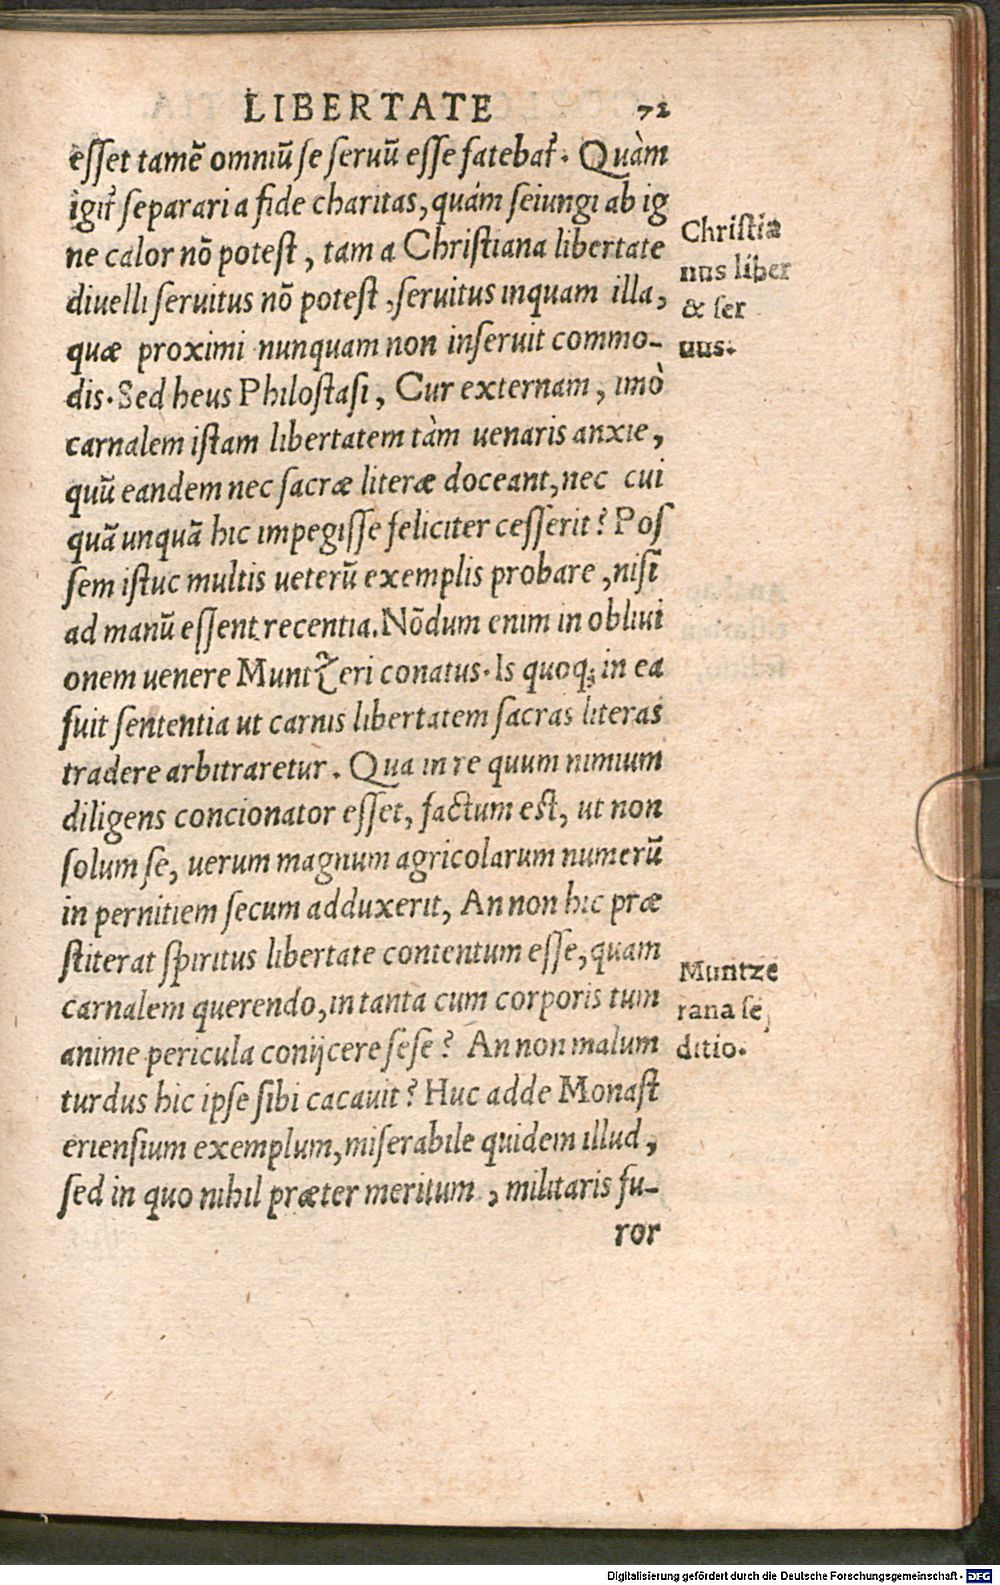 LIBERTATE 72
eſſet tamē omniū ſe ſeruū eſſe fatebat᷑. Quàm
igit᷑ ſeparari a fide charitas, quám ſeiungi ab ig
ne calor nō poteſt, tam a Chriſtiana libertate
diuelli ſeruitus nō poteſt, ſeruitus inquam illa,
quæ proximi nunquam non inſeruit commo-
dis. Sed heus Philoſtaſi, Cur externam, imò
carnalem iſtam libertatem tàm uenaris anxie,
quū eandem nec ſacræ literæ doceant, nec cui
quā unquā hic impegiſſe feliciter ceſſerit? Poſ
ſem iſtuc multis ueterū exemplis probare, niſi
ad manū eſſent recentia. Nōdum enim in obliui
onem uenere Muntzeri conatus. Is quoq; in ea
fuit ſententia ut carnis libertatem ſacras literas
tradere arbitraretur. Qua in re quum nimium
diligens concionator eſſet, factum eſt, ut non
ſolum ſe, uerum magnum agricolarum numerū
in pernitiem ſecum adduxerit, An non hic præ
ſtiterat ſpiritus libertate contentum eſſe, quam
carnalem querendo, in tanta cum corporis tum
anime pericula conijcere ſeſe? An non malum
turdus hic ipſe ſibi cacauit? Huc adde Monaſt
erienſium exemplum, miſerabile quidem illud,
ſed in quo nihil præter meritum, militaris fu-
ror
Chriſtia
nus liber
& ſer
uus.
Muntze
rana ſe,
ditio.
Digitalisierung gefördert durch die Deutsche Forschungsgemeinschaft - DFG